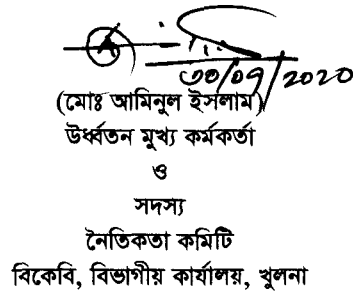 ৩০/০9/2020
(মোঃ আমিনুল ইসলাম)
উর্ধ্বতন মুখ্য কর্মকর্তা
ও
সদস্য
নৈতিকতা কমিটি
বিকেবি, বিভাগীয় কার্যালয়, খুলনা